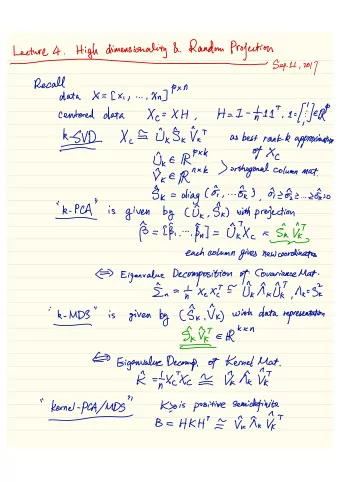 Lecture 4. High dimensionality & Random Projection
Sep. 11, 2017
Recall
data X = [x₁, ..., xₙ]^{p×n}
centered data X_c = XH, H = I - 1/n 11^T, 1 = [1 ⋮ 1] ∈ R^p
k-SVD X_c ≅ Û_k Ŝ_k V̂_k^T as best rank-k approximation
of X_c
Û_k ∈ R^{p×k}
V̂_k ∈ R^{n×k} > orthogonal column mat.
Ŝ_k = diag (σ̂₁, ... σ̂_k), σ̂₁ ≥ σ̂₂ ≥ ... ≥ σ̂_k > 0
"k-PCA" is given by (Û_k, Ŝ_k) with projection
β̂ = [β̂₁, ..., β̂ₙ] = Û_k^T X_c = Ŝ_k V̂_k^T
each column gives new coordinates
⟺ Eigenvalue Decomposition of Covariance Mat.
Σ̂ₙ = 1/n X_c X_c^T ≅ Û_k Λ̂_k Û_k^T, Λ_k = Ŝ_k^2
"k-MDS" is given by (Ŝ_k, V̂_k) with data representation
Ŝ_k V̂_k^T ∈ R^{k×n}
⟺ Eigenvalue Decomp. of Kernel Mat.
K̂ = 1/n X_c^T X_c ≅ V̂_k Λ̂_k V̂_k^T
"kernel-PCA/MDS" K ≥ 0 is positive semidefinite
B = HKH^T ≅ V̂_k Λ̂_k V̂_k^T